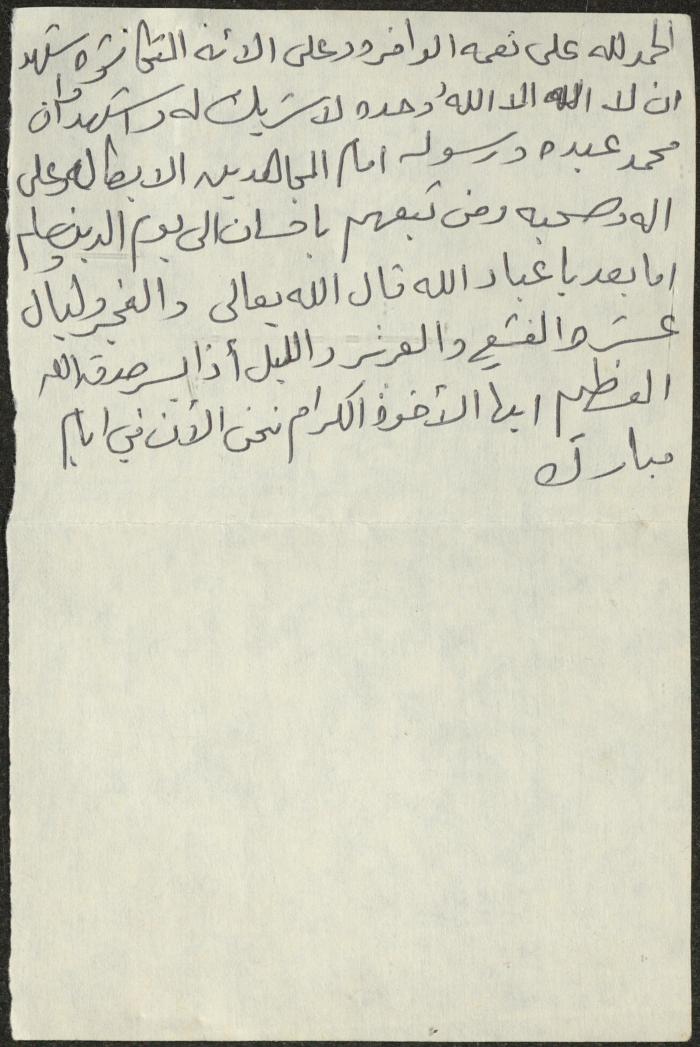 الحمد لله على نعمه الوافره وعلى الائه المتكاثره شهد
ان لا الله الا الله وحده لا شريك له واشهد وان
محمد عبده ورسوله امام المجاهدين الابطال وعلى
اله وصحبه ومن تبعهم باحسان الى يوم الدين وسلم
اما بعد يا عباد الله قال الله تعالى والفجر وليال
عشر والشفع والوتر والليل أذا يسر صدق الله
العظيم ايها الأخوة الكرام نحن الأن في ايام
مبارك